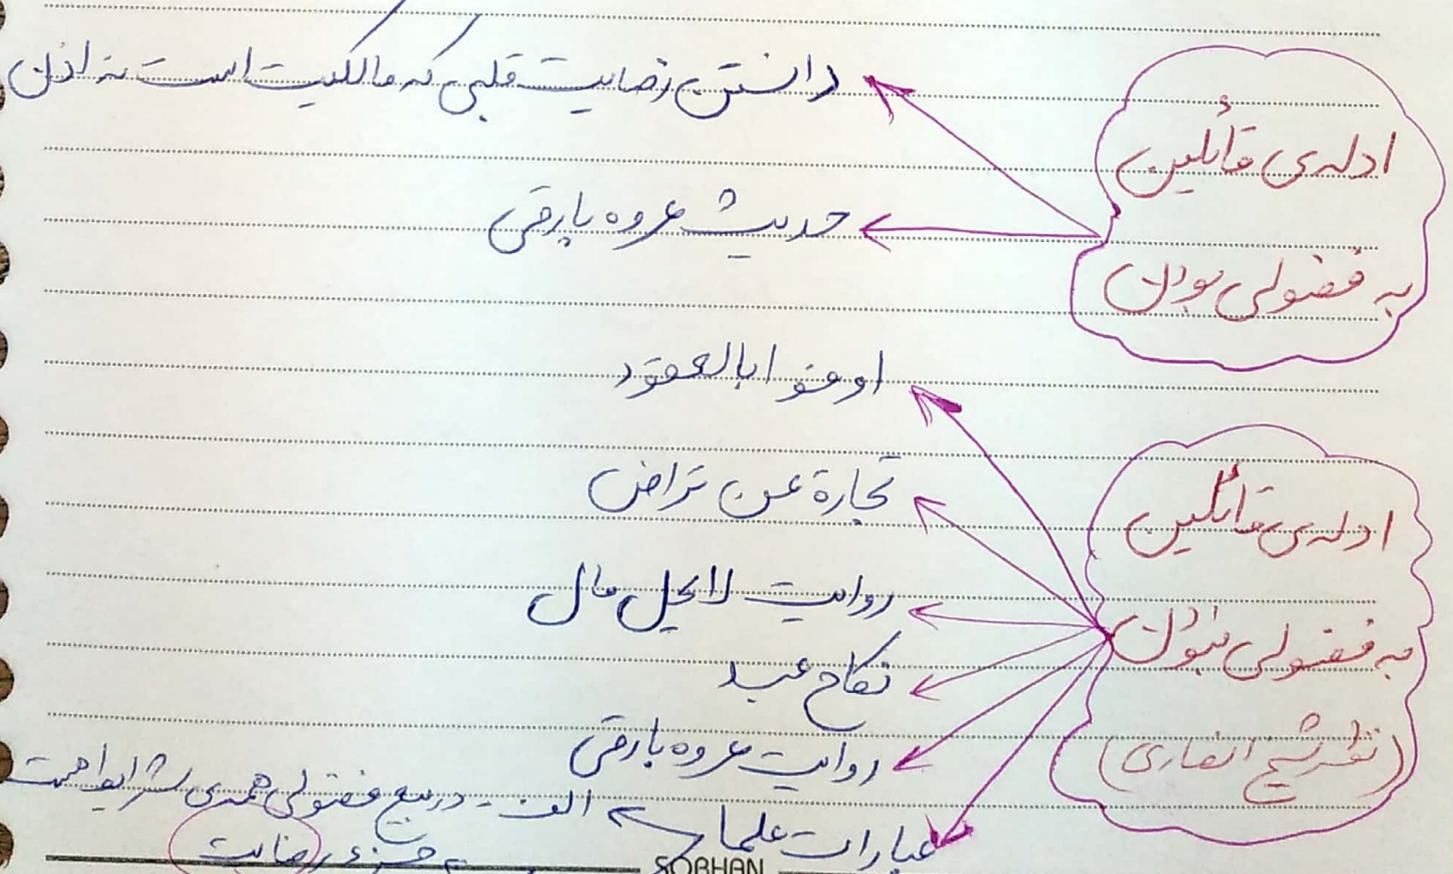 ادله‌ی قائلین
به فضولی بودن
دانستن رضایت قلبی که مالکیت است نه اذن
حدیث عروه بارقی
ادله‌ی قائلین
به فضولی نبودن
(نظر شیخ انصاری)
اوفوا بالعقود
تجارة عن تراض
روایت لا یحل مال
نکاح عبد
روایت عروه بارقی
عبارات علما الف - در بیع فضولی همه‌ی شرایط هست
به جزء رضایت
SOBHAN